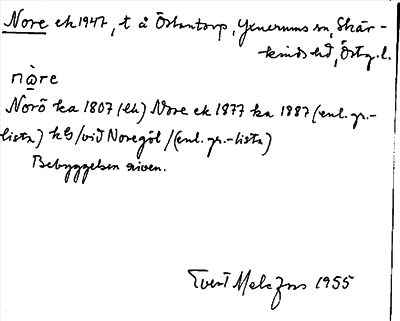 Nore ek 1947, t å Östantorp, Yxnerums sn, Skär-
kinds hd, Östg. l.
nòre
Norö ka 1807 (lh) Nore ek 1877 ka 1887 (enl. gr.-
lista) kG/vid Noregöl/(enl. gr.-lista)
Bebyggelsen riven.
Evert 1955